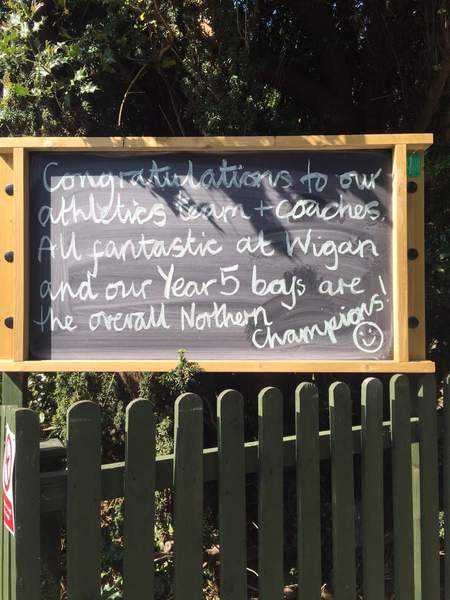 Congratulations to our
athletics team + coaches.
All fantastic at Wigan
and our Year 5 boys are
the overall Northern
champions!